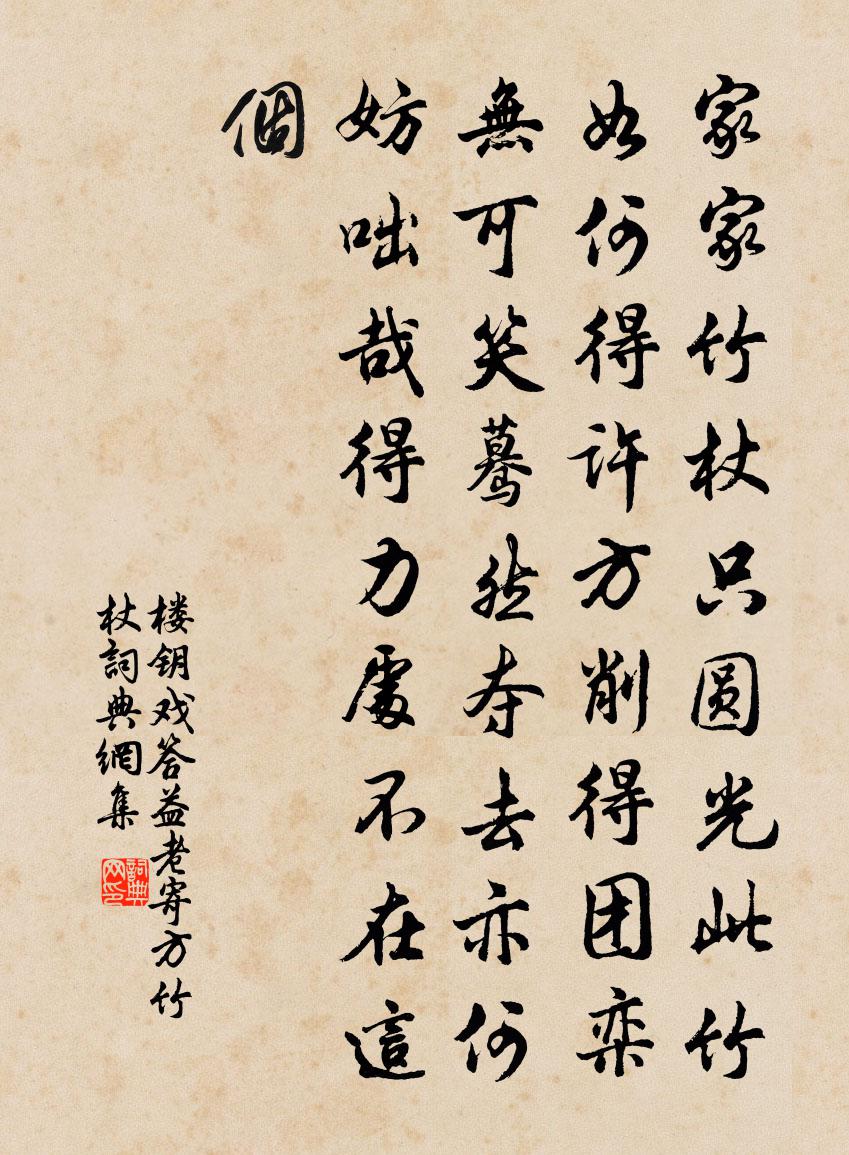 家家竹杖只圆光此竹
如何得许方削得团栾
無可笑蓦然夺去亦何
妨咄哉得力處不在這
個
楼钥戏答益老寄方竹
杖詞典網集
詞典网印